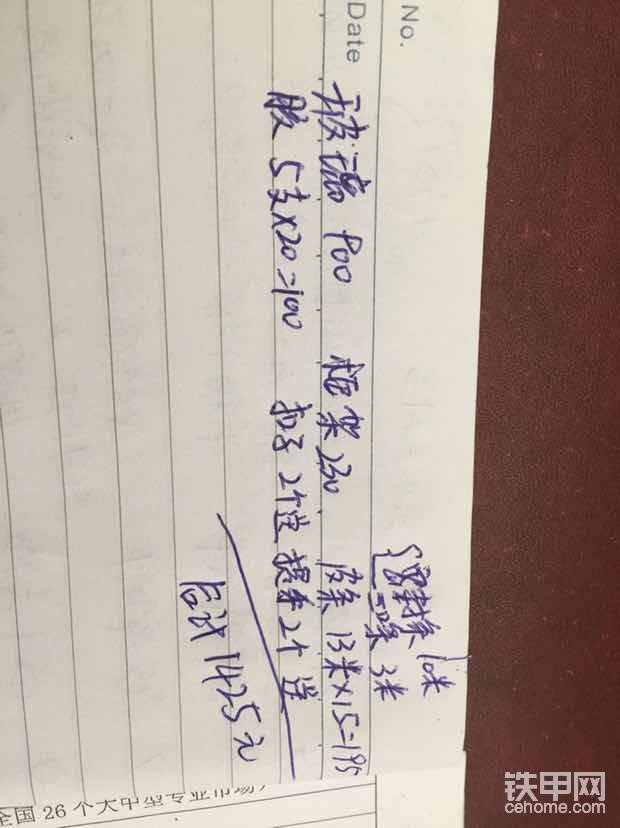 No.
Date
密封条 10米
3米
玻璃 900 框架 230 皮条 13米×15=195
胶 5支×20=100 扣子 2个送 提手 2个送
合计 1425元
全国 26 个大中型专业市场,
铁甲网
cehome.com